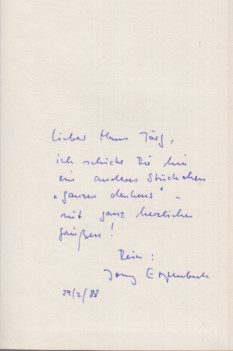 Lieber Hans Jörg,
ich schicke Dir hier
ein anderes Stückchen
„ganzen denkens" -
mit ganz herzlichen
Grüßen!
Dein:
Jonny
29/2/88